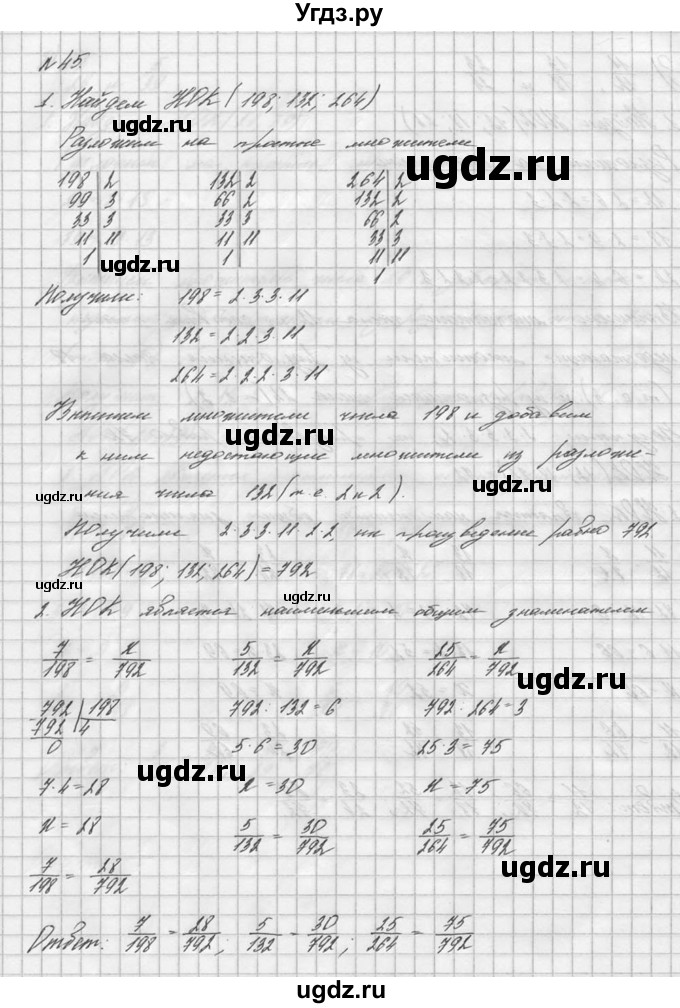 Угдз.ру
№ 45.
1. Найдем НОК (198; 132; 264)
Разложим на простые множители
198 | 2 132 | 2 264 | 2
99 | 3 66 | 2 132 | 2
33 | 3 33 | 3 66 | 2
11 | 11 11 | 11 33 | 3
1 | 1 | 11 | 11
1
Получили: 198 = 2·3·3·11
132 = 2·2·3·11
264 = 2·2·2·3·11
Выпишем множители числа 198 и добавим
к ним недостающие множители из разложе-
ния числа 132 (т.е. 2 и 2).
Получили 2·3·3·11·2·2, их произведение равно 792
НОК (198; 132; 264) = 792
2. НОК является наименьшим общим знаменателем
7/198 = x/792 5/132 = x/792 25/264 = x/792
792 | 198 792 : 132 = 6 792 : 264 = 3
792 | 4
0 5·6 = 30 25·3 = 75
7·4 = 28 x = 30 x = 75
x = 28 5/132 = 30/792 25/264 = 75/792
7/198 = 28/792
Ответ: 7/198 = 28/792; 5/132 = 30/792; 25/264 = 75/792
ugdz.ru
ugdz.ru
ugdz.ru
ugdz.ru
ugdz.ru
ugdz.ru
ugdz.ru
ugdz.ru
ugdz.ru
ugdz.ru
ugdz.ru
ugdz.ru
ugdz.ru